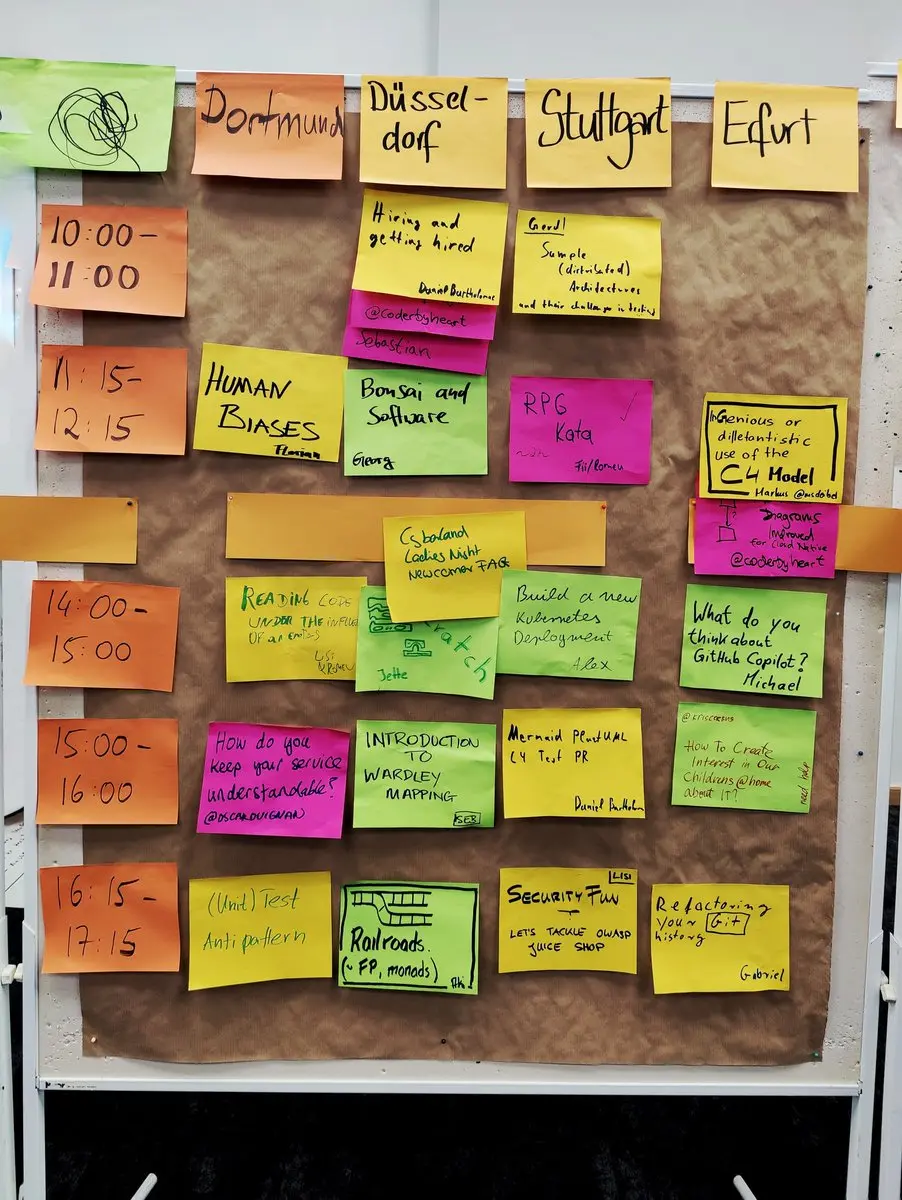 Dortmund
Düssel-
dorf
Stuttgart
Erfurt
10:00-
11:00
Hiring and
getting hired
Daniel Bartholomae
@coderbyheart
Sebastian
Gerd!
(distributed)
Architectures
and their challenge in testing
11:15-
12:15
HUMAN
BIASES
Florian
Bonsai and
Software
Georg
RPG
Kata
InGenious or
dilletantistic
use of the
C4 Model
Markus
Diagrams
Improved
for Cloud Native
@coderbyheart
Cyberland
Ladies Night
Newcomer FAQ
14:00-
15:00
READING CODE
UNDER THE INFLUE
OF
LISI
Jette
Build a new
Kubernetes
Deployment
Alex
What do you
think about
GitHub Copilot?
Michael
15:00-
16:00
How do you
keep your service
understandable?
@OSCARDUIGNAN
INTRODUCTION
TO
WARDLEY
MAPPING
SEB
Mermaid PlantUML
C4 Test PR
Daniel Bartholom
How To Create
Interest in Our
Childrens@home
about IT?
need help
16:15-
17:15
(Unit) Test
Antipattern
Railroads.
(~ FP, monads)
LISI
SECURITY FUN
LET'S TACKLE OWASP
JUICE SHOP
Refactoring
your Git
history
Gabriel